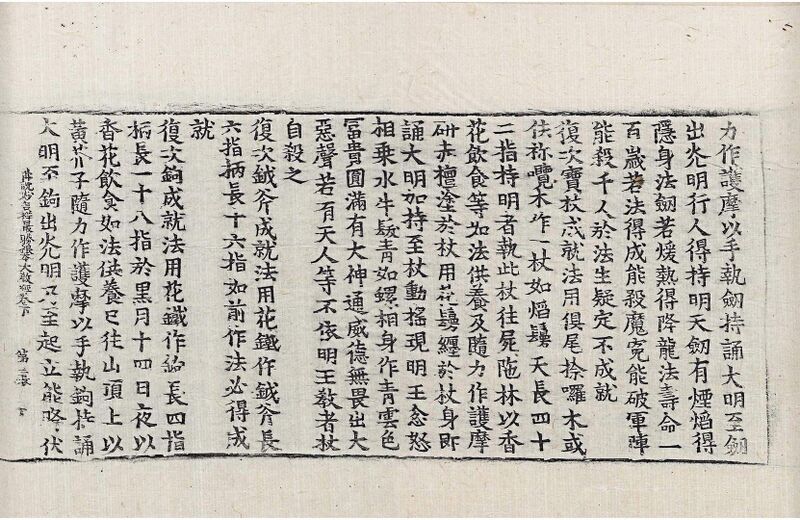 力作護摩以手執劒持誦大明至劒
出光明行人得持明天劒有煙焰得
隱身法劒若煖熱得降龍法壽命一
百歲若法得成能殺魔寃能破軍陣
能殺千人於法生疑定不成就
復次寶杖成就法用俱尾捺囉木或
佉祢囕木作一杖如焰鬘天長四十
二指持明者執此杖往屍陁林以香
花飲食等如法供養及隨力作護摩
研赤檀塗於杖用花鬘纏於杖身即
誦大明加持至杖動搖現明王忿怒
相乗水牛髮青如螺相身作青雲色
冨貴圓滿有大神通威德無畏出大
惡聲若有天人等不依明王教者杖
自殺之
復次鉞斧成就法用花鐵作鉞斧長
六指柄長十六指如前作法必得成
就
復次鉤成就法用花鐵作鉤長四指
柄長一十八指於黑月十四日夜以
香花飲食如法供養已往山頂上以
黃芥子隨力作護摩以手執鉤持誦
大明至鉤出光明又至起立能降伏
妙吉祥最勝根本大教經卷下 第三張